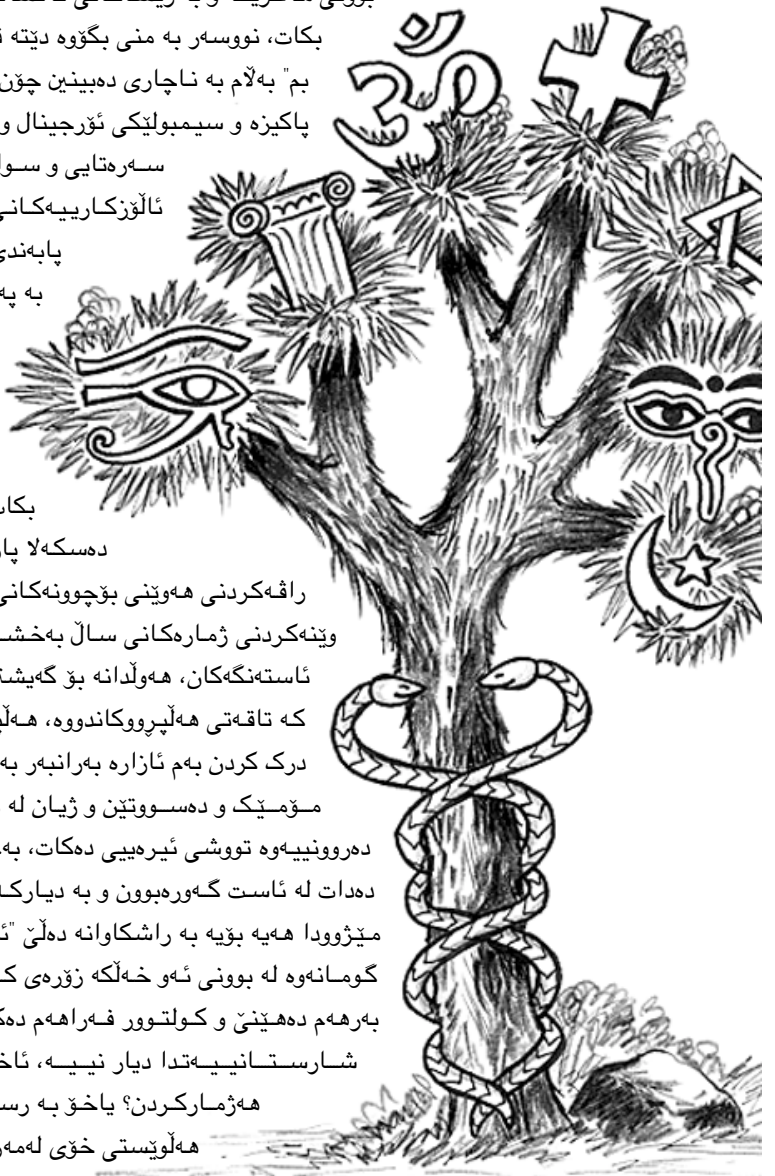 بکات، نووسەر بە منی بگۆوە دێتە
بم" بەڵام بە ناچاری دەبینین چۆن
پاکیزە و سیمبولێکی ئۆرجینال و
سەرەتایی و
ئاڵۆزکارییەکانی
پابەندی
بە
دەسکەلا
راڤەکردنی هەوێنی بۆچوونەکانی
وێنەکردنی ژمارەکانی ساڵ
ئاستەنگەکان، هەوڵدانە بۆ
کە تاقەتی هەڵپڕووکاندووە،
درک کردن بەم ئازارە بەرانبەر
مۆمێک و دەسووتێن و ژیان لە
دەروونییەوە تووشی ئیرەیی دەکات،
دەدات لە ئاست گەورەبوون و بە
مێژوودا هەیە بۆیە بە راشکاوانە دەڵێ
گومانەوە لە بوونی ئەو خەڵکە زۆرەی
بەرهەم دەهێنێ و کولتوور فەراهەم
شارستانییەتدا دیار نییە،
هەژمارکردن؟ یاخۆ بە
هەڵوێستی خۆی